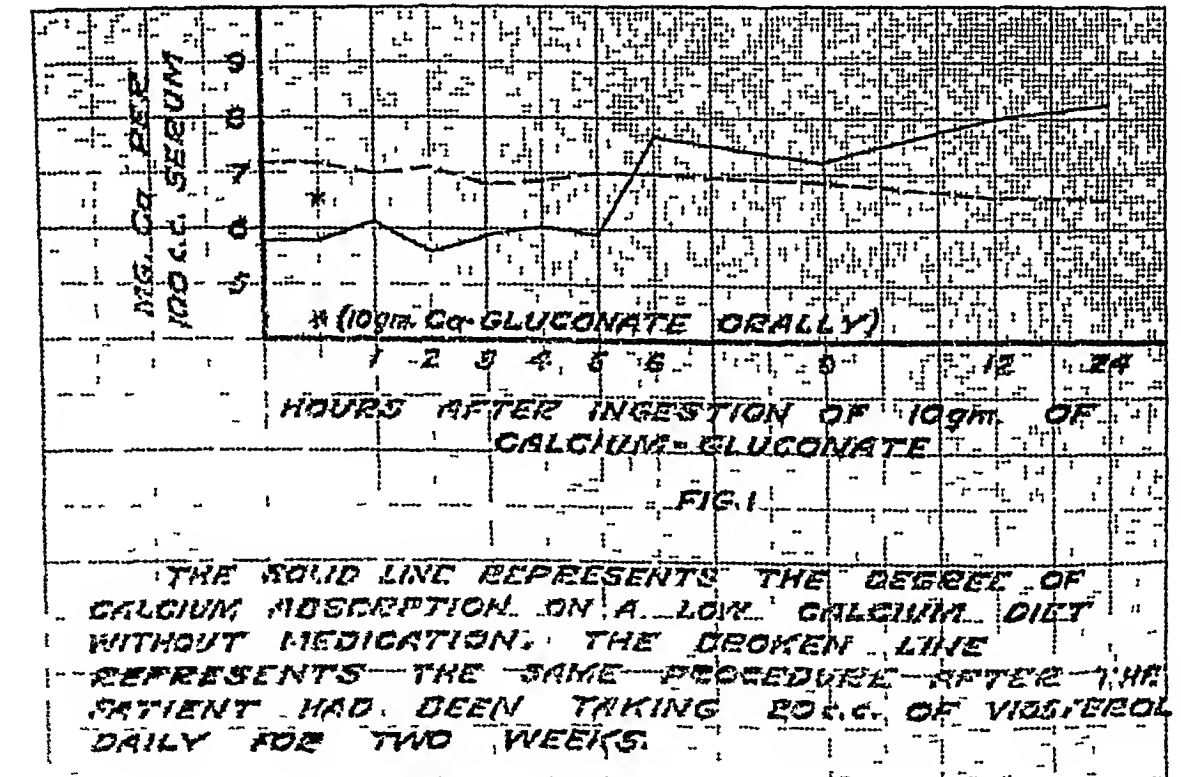 MG. Ca PER
100 C.C. SERUM
9
8
7
6
5
*
* (10gm. Ca-GLUCONATE ORALLY)
1 2 3 4 5 6 9 12 24
HOURS AFTER INGESTION OF 10gm. OF
CALCIUM-GLUCONATE
FIG. 1
THE SOLID LINE REPRESENTS THE DEGREE OF
CALCIUM ABSORPTION ON A LOW CALCIUM DIET
WITHOUT MEDICATION. THE BROKEN LINE
REPRESENTS THE SAME PROCEDURE AFTER THE
PATIENT HAD BEEN TAKING 20 c.c. OF VIOSTEROL
DAILY FOR TWO WEEKS.